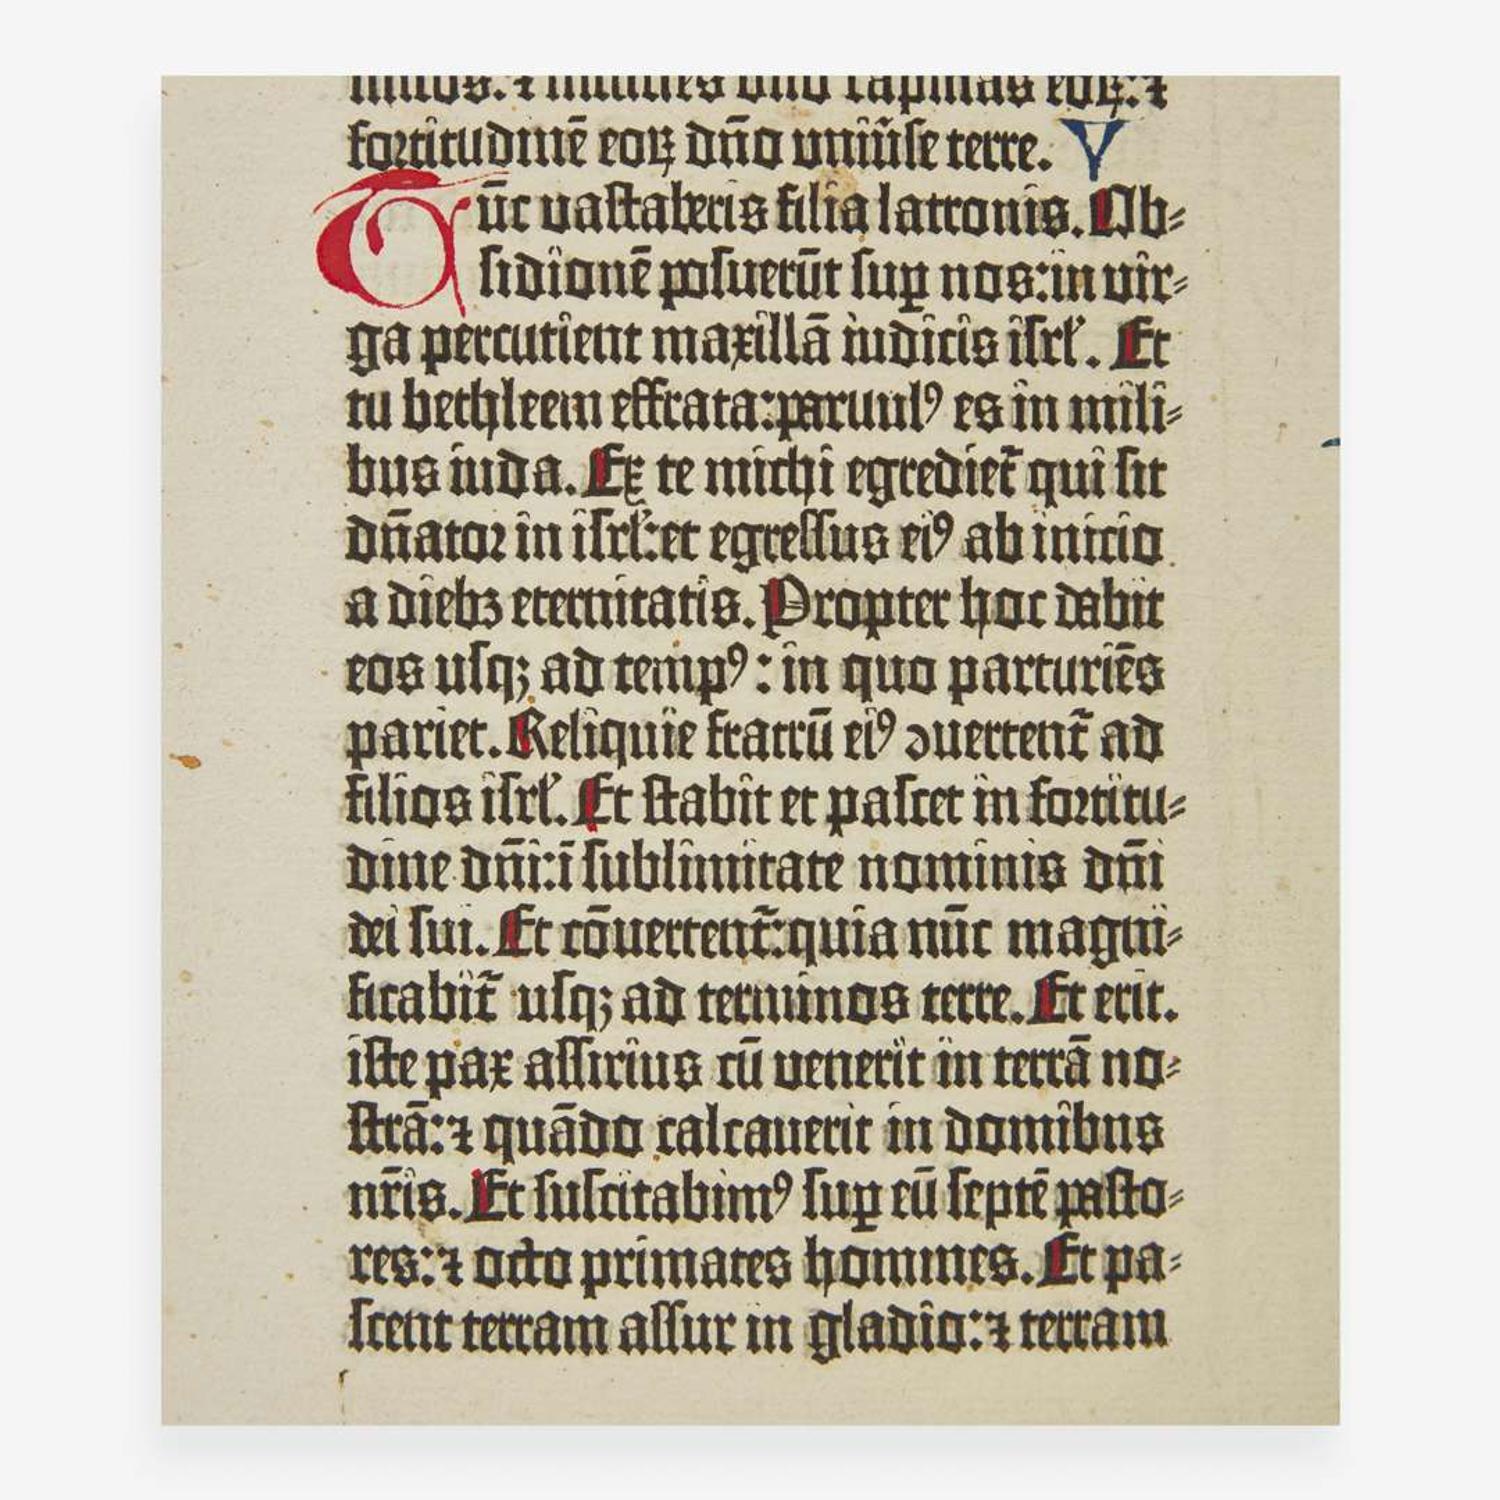 multos: ⁊ interficies dño rapinas eoꝝ: ⁊
fortitudinē eoꝝ dño uniũſe terre. V
Tūc uaſtaberis filia latronis. Ob⸗
ſidionē poſuerūt ſuꝑ nos: in uir⸗
ga percutient maxillā iudicis iſrl̓. Et
tu bethleem effrata: paruulꝰ es in mili⸗
bus iuda. Ex te michi egrediet᷑ qui ſit
dn̄atoꝛ in iſrl̓: et egreſſus eiꝰ ab inicio
a diebꝫ eternitatis. Propter hoc dabit
eos uſqꝫ ad tempꝰ: in quo parturiēs
pariet. Reliquie fratrū eiꝰ ↄuertent᷑ ad
filios iſrl̓. Et ſtabit et paſcet in foꝛtitu⸗
dine dn̄i: ī ſublimitate nominis dn̄i
dei ſui. Et cōuertent᷑: quia nūc magni⸗
ficabit᷑ uſqꝫ ad terminos terre. Et erit.
iſte pax aſſirius cū uenerit in terrā no⸗
ſtrā: ⁊ quādo calcauerit in domibus
nr̄is. Et ſuſcitabimꝰ ſuꝑ eū ſeptē paſto⸗
res: ⁊ octo primates homines. Et pa⸗
ſcent terram aſſur in gladio: ⁊ terram